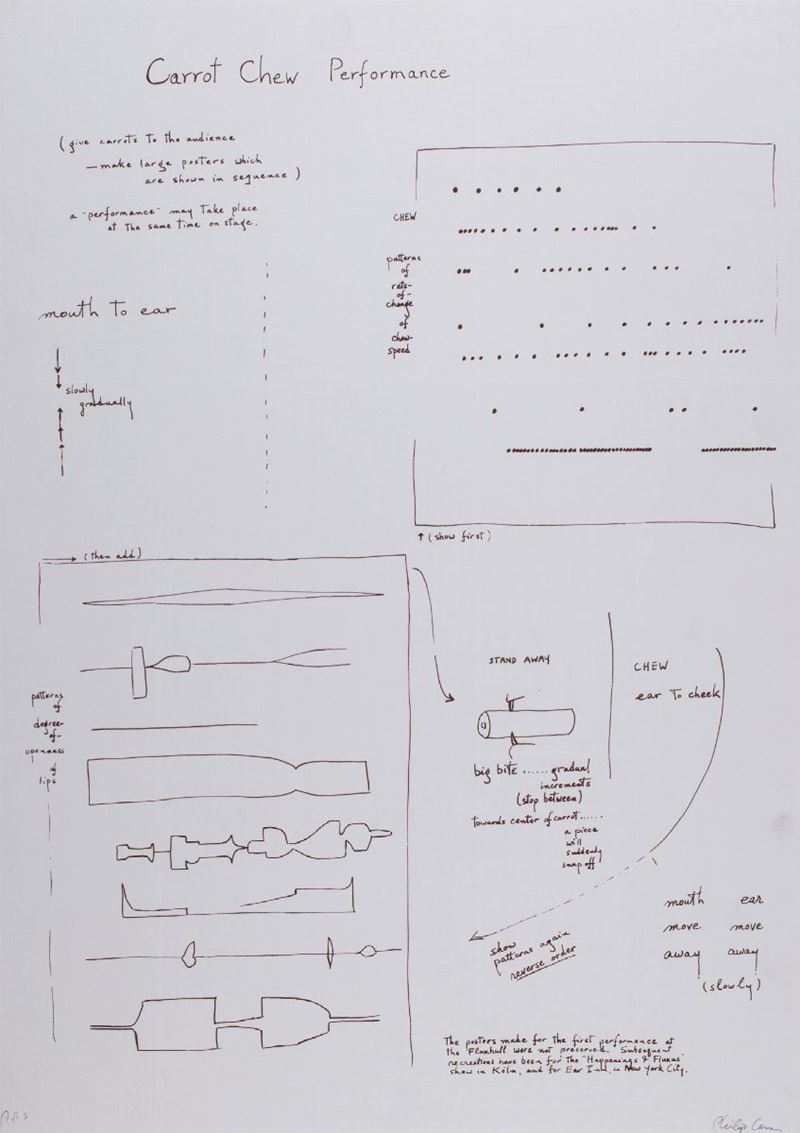 Carrot Chew Performance
(give carrots to the audience
—make large posters which
are shown in sequence)
a "performance" may take place
at the same time on stage.
mouth to ear
slowly
gradually
CHEW
patterns
of
rate-
of-
change
of
chew-
speed
↑ (show first)
→ (then add)
patterns
of
degree-
of-
openness
of
lips
STAND AWAY
big bite ...... gradual
increments
(stop between)
towards center of carrot......
a piece
will
suddenly
snap off
CHEW
ear to cheek
show
patterns again
reverse order
mouth ear
move move
away away
(slowly)
The posters made for the first performance at
the Fluxhall were not preserved. Subsequent
recreations have been for the "Happenings & Fluxus"
show in Köln, and for Ear Inn, in New York City.
Philip